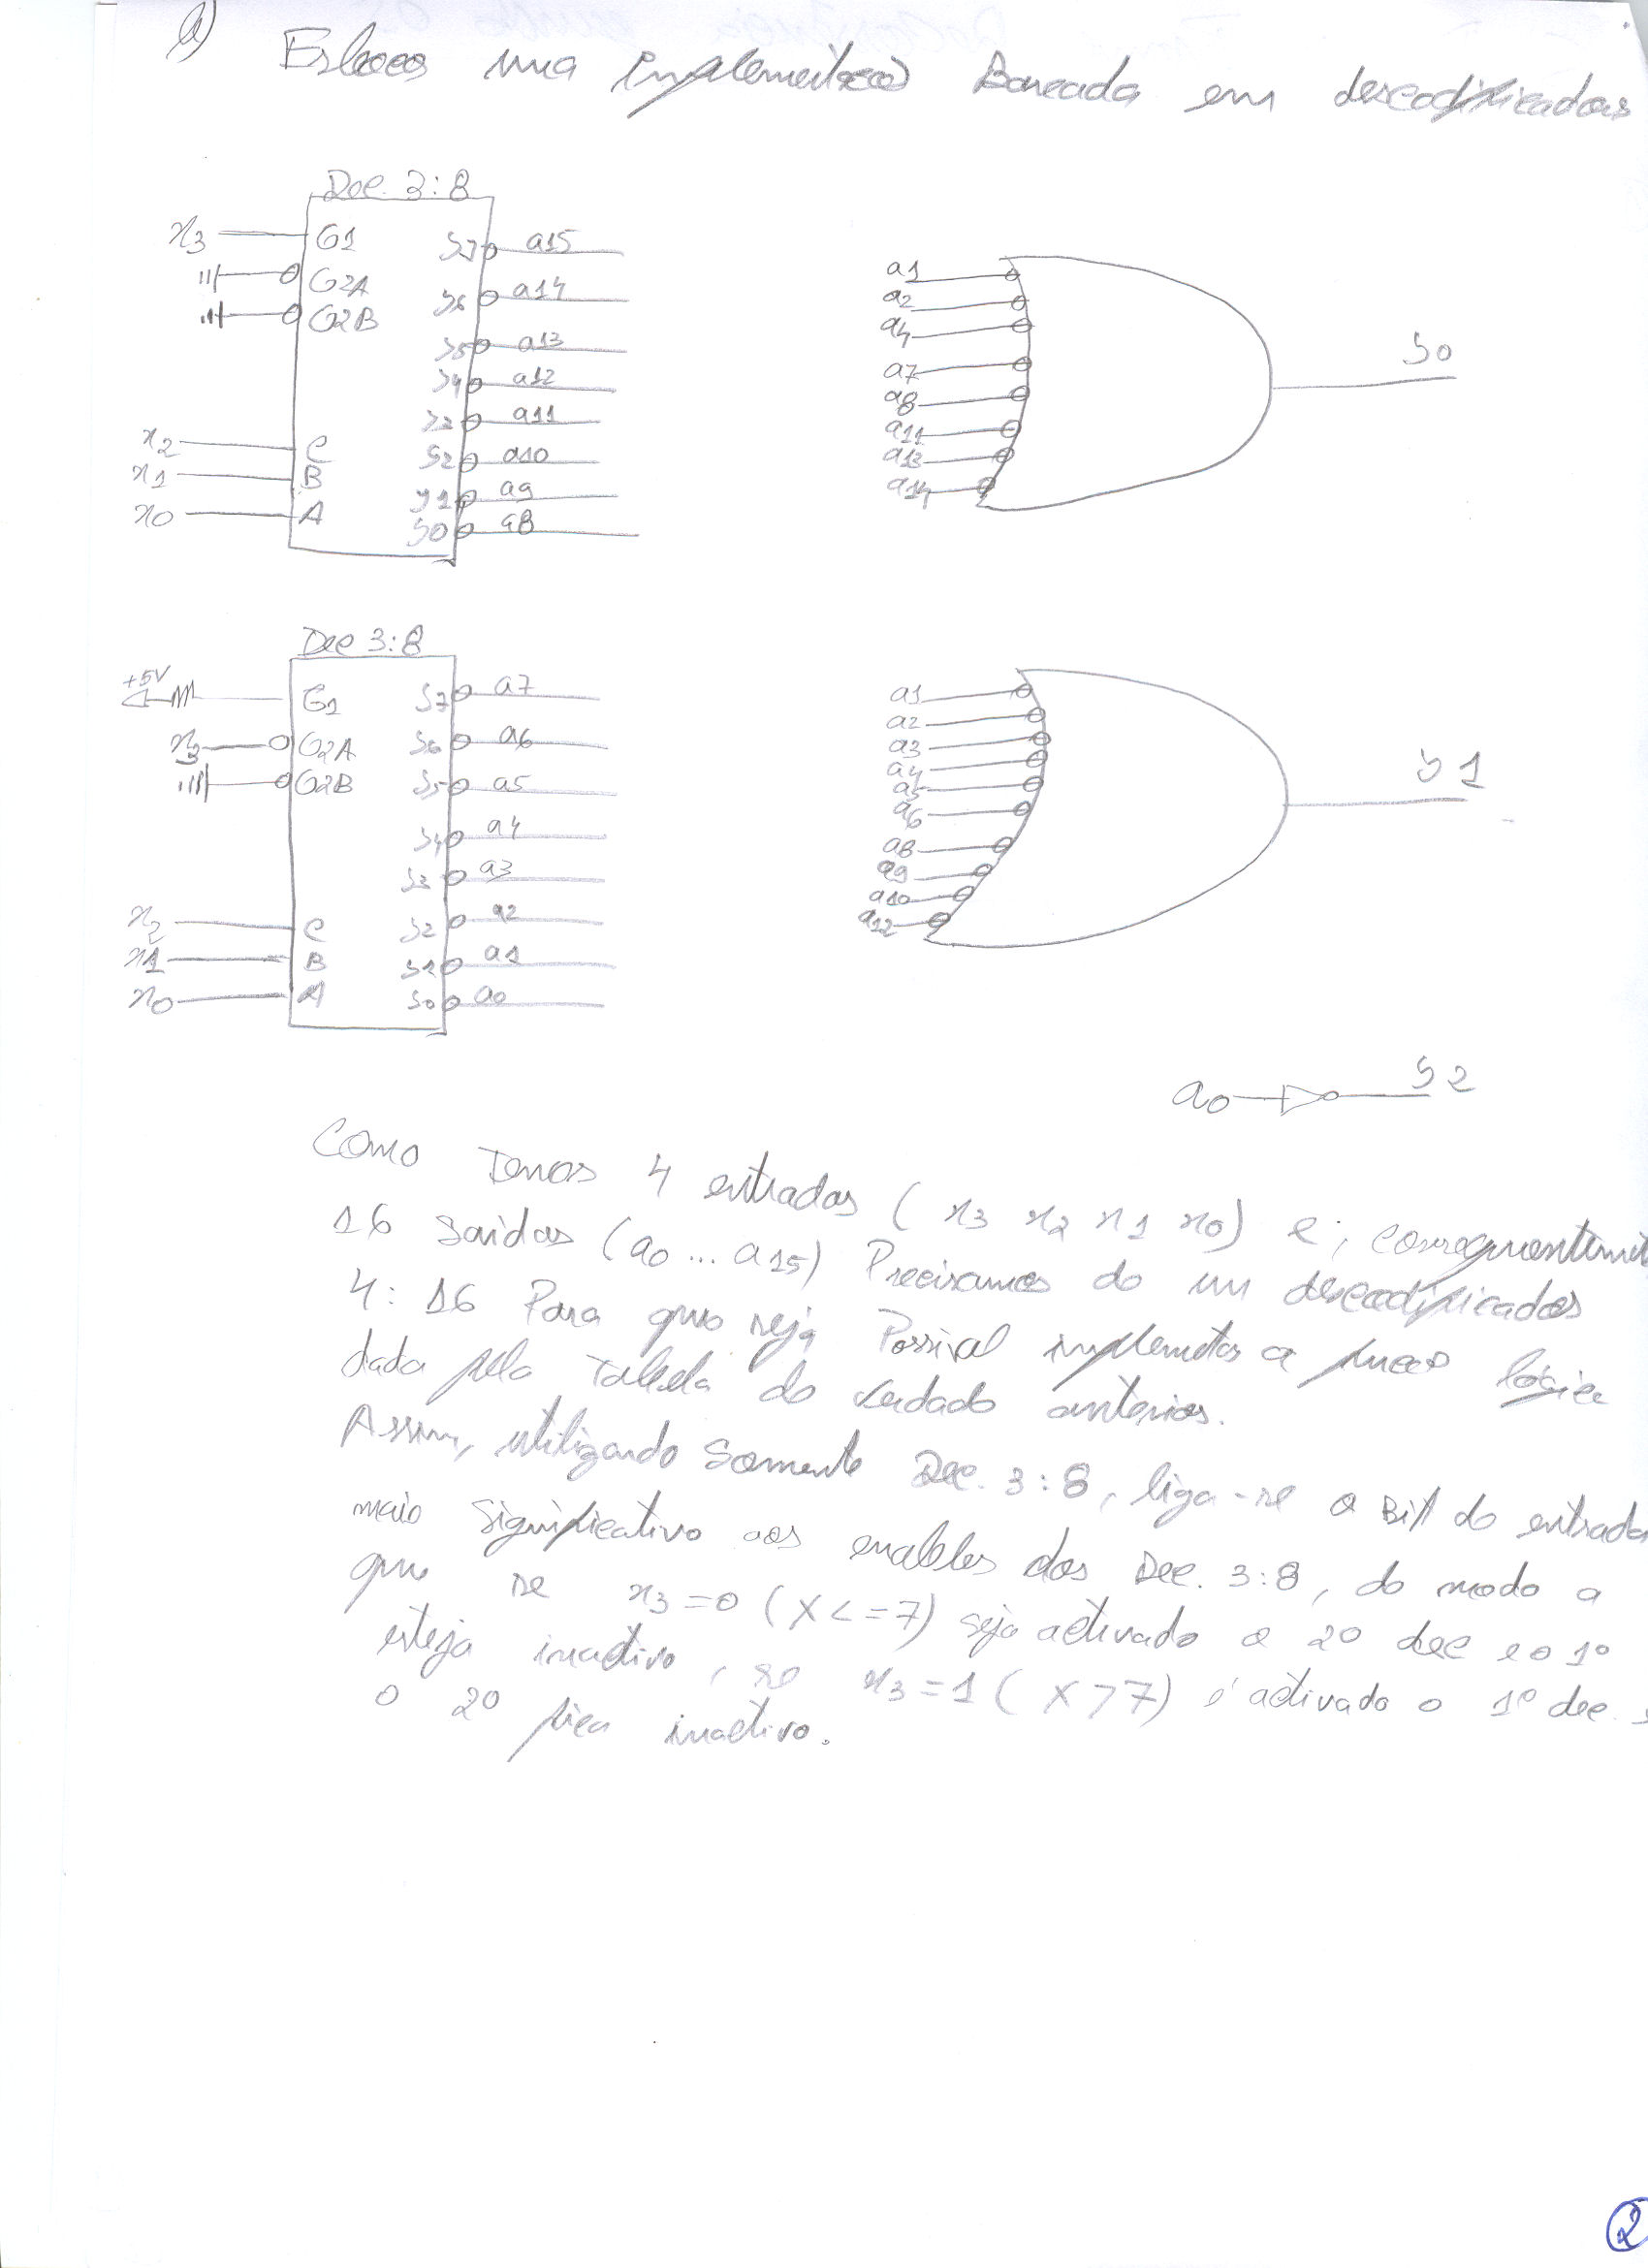 a) Esboços uma implementação Baseada em descodificadores
Dec. 3:8
x3 G1 S7 a15
G2A S6 a14
G2B S5 a13
S4 a12
S3 a11
x2 C S2 a10
x1 B S1 a9
x0 A S0 a8
a1
a2
a4
a7
a8
a11
a13
a14
S0
Dec 3:8
+5V G1 S7 a7
x3 G2A S6 a6
G2B S5 a5
S4 a4
S3 a3
x2 C S2 a2
x1 B S1 a1
x0 A S0 a0
a1
a2
a3
a4
a5
a6
a8
a9
a10
a12
S1
a0 S2
Como Temos 4 entradas (x3 x2 x1 x0) e, consequentement
16 saídas (a0 ... a15) Precisamos de um descodificador
4:16 Para que seja Possivel implementar a função lógica
dada pela Tabela de verdade anterior.
Assim, utilizando somente Dec. 3:8, liga-se o Bit de entrada
mais significativo aos enables dos Dec. 3:8, de modo a
que se x3=0 (X<=7) seja activado o 2º dec e o 1º
esteja inactivo, se x3=1 (X>7) é activado o 1º dec.
o 2º fica inactivo.
2